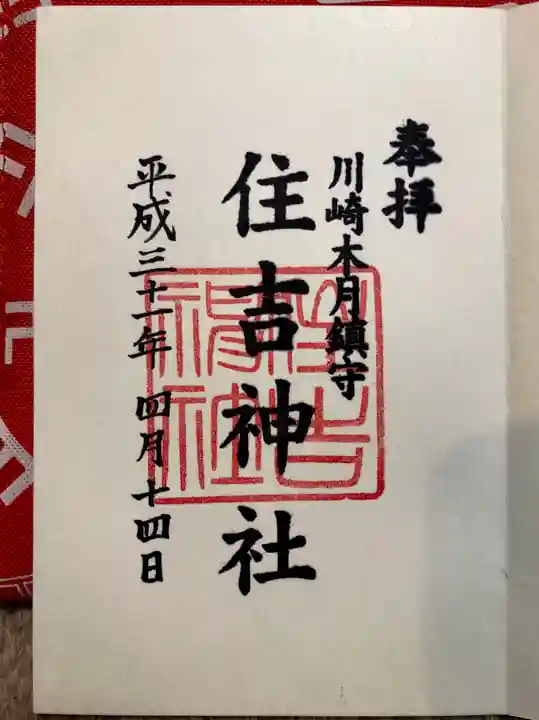 奉拝
川崎木月鎮守
住吉神社
平成三十一年 四月十四日
住吉神社